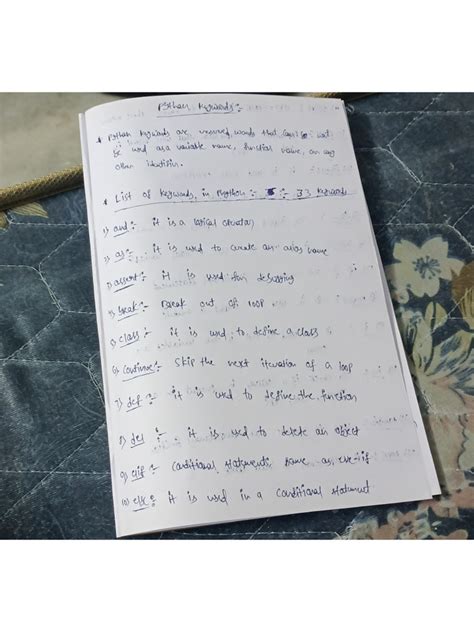 Python Keywords :-
* Python keywords are reserved words that can not
be used as a variable name, function name, or any
other identifier.
* List of Keywords in Python :- :- 33 Keywords
1) and :- it is a logical operator
2) as :- it is used to create an alias name
3) assert :- it is used for debugging
4) break :- Break out of loop
5) class :- it is used to define a class
6) continue :- Skip the next iteration of a loop
7) def :- it is used to define the function
8) del :- it is used to delete an object
9) elif :- Conditional statements same as else-if
10) else :- It is used in a conditional statement